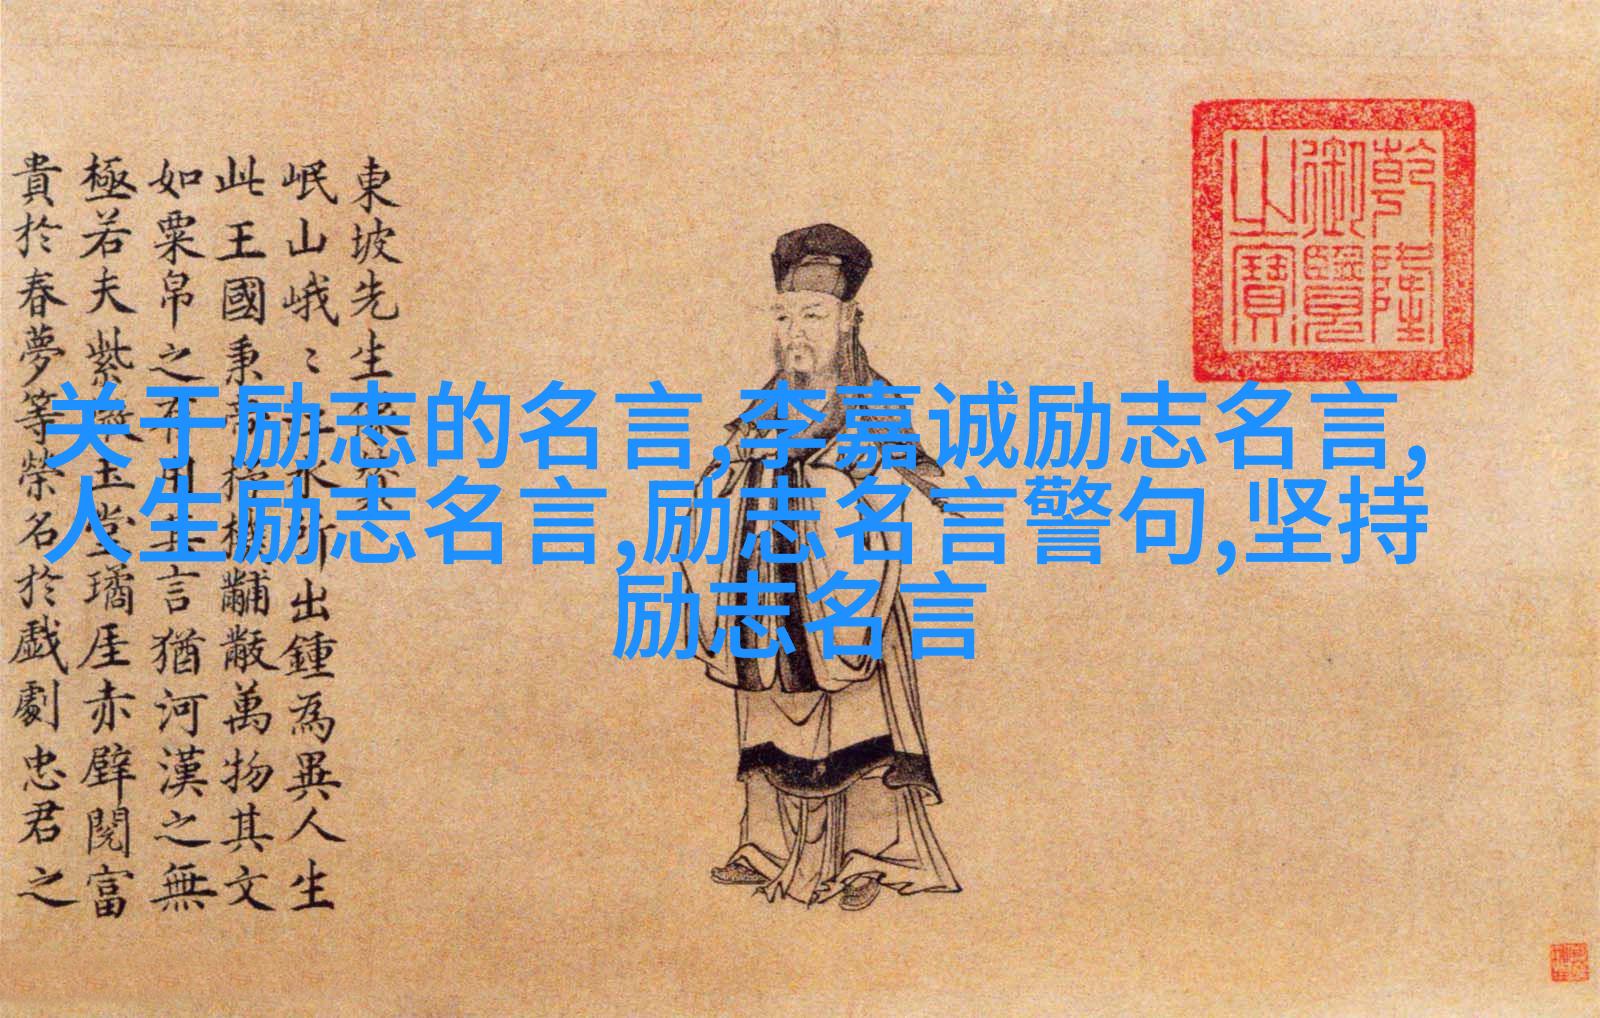 乾隆
御覽
之寶
東坡先生像贊
岷山峨〻江水所出鍾為異人生
此王國秉帝杼機黼黻萬物其文
如粟帛之有用其言猶河漢之無
極若夫紫微玉堂璚厓赤壁閱富
貴於春夢等榮名於戲劇忠君之
关于励志的名言,李嘉诚励志名言,
人生励志名言,励志名言警句,坚持
励志名言